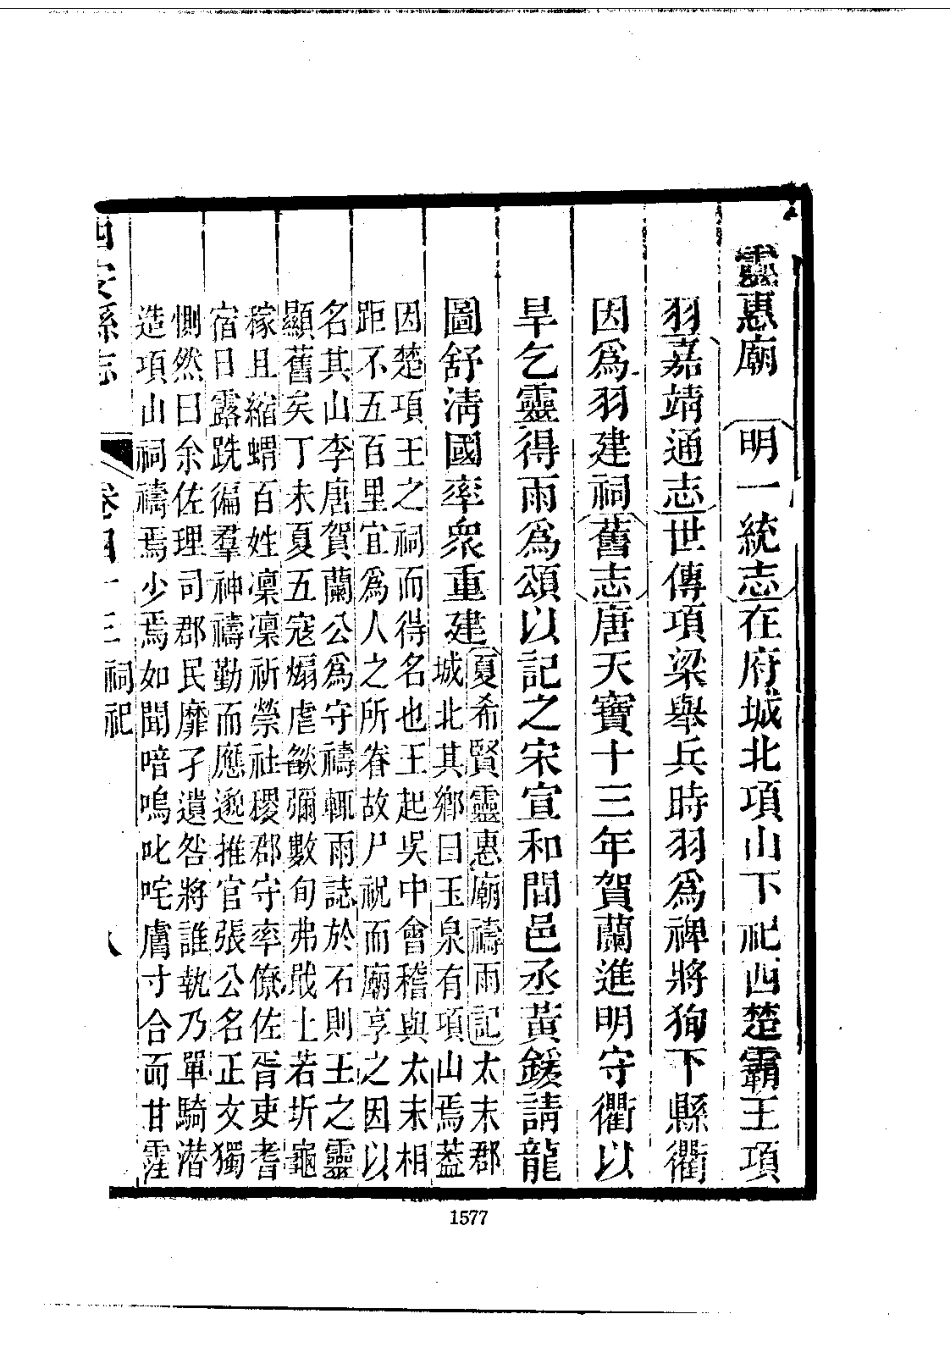 靈惠廟　明一統志在府城北項山下祀西楚霸王項
羽嘉靖通志世傳項梁舉兵時羽爲裨將狥下縣衢
因爲羽建祠舊志唐天寶十三年賀蘭進明守衢以
旱乞靈得雨爲頌以記之宋宣和間邑丞黃鍰請龍
圖舒淸國率衆重建
夏希賢靈惠廟禱雨記太末郡
城北其鄕曰玉泉有項山焉葢
因楚項王之祠而得名也王起吳中會稽與太末相
距不五百里宜爲人之所眷故尸祝而廟享之因以
名其山李唐賀蘭公爲守禱輒雨誌於石則王之靈
顯舊矣丁未夏五寇煽虐燄彌數旬弗戢土若圻龜
稼且縮蝟百姓凜凜祈禜社稷郡守率僚佐胥吏耆
宿日露跣徧羣神禱勤而應邈推官張公名正文獨
惻然曰余佐理司郡民靡孑遺咎將誰執乃單騎潛
造項山祠禱焉少焉如聞喑嗚叱咤膚寸合而甘霔
西安縣志
卷四十三　祠祀
八
1577